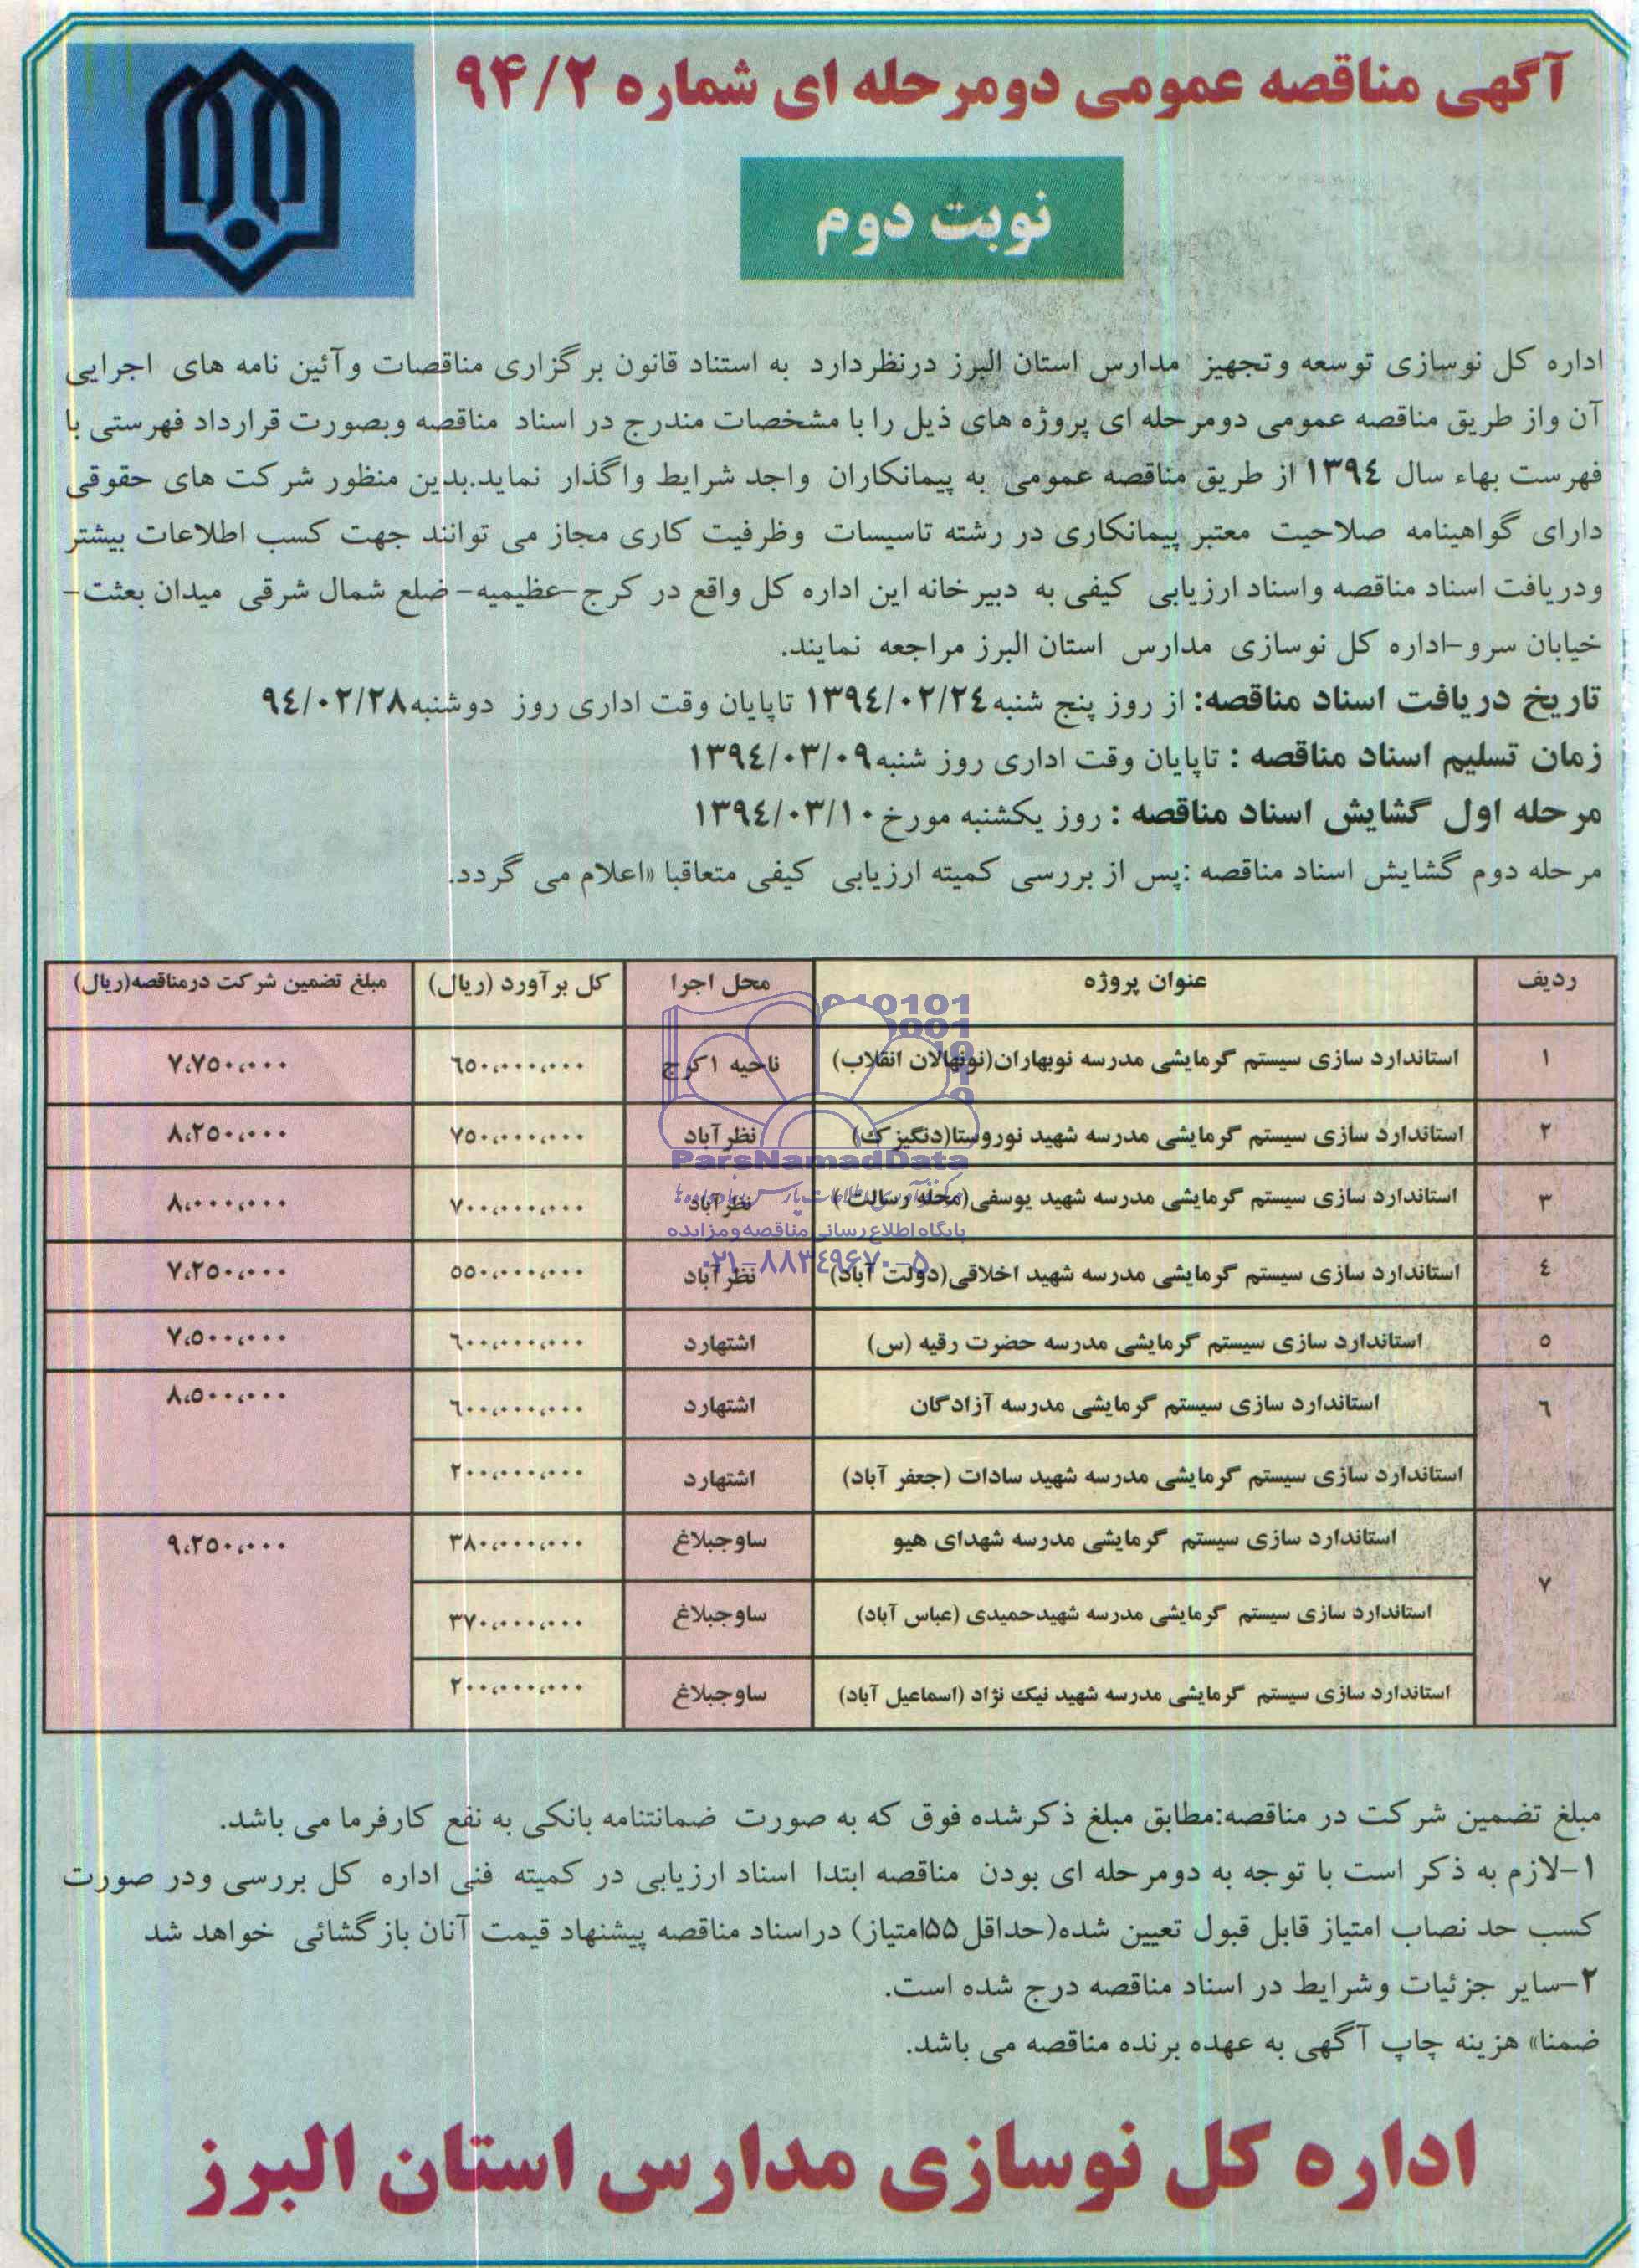 آگهی مناقصه عمومی دومرحله ای شماره ۹۴/۲
نوبت دوم
اداره کل نوسازی توسعه وتجهیز مدارس استان البرز درنظردارد به استناد قانون برگزاری مناقصات وآئین نامه های اجرایی
آن واز طریق مناقصه عمومی دومرحله ای پروژه های ذیل را با مشخصات مندرج در اسناد مناقصه وبصورت قرارداد فهرستی با
فهرست بهاء سال ۱۳۹٤ از طریق مناقصه عمومی به پیمانکاران واجد شرایط واگذار نماید.بدین منظور شرکت های حقوقی
دارای گواهینامه صلاحیت معتبر پیمانکاری در رشته تاسیسات وظرفیت کاری مجاز می توانند جهت کسب اطلاعات بیشتر
ودریافت اسناد مناقصه واسناد ارزیابی کیفی به دبیرخانه این اداره کل واقع در کرج-عظیمیه- ضلع شمال شرقی میدان بعثت-
خیابان سرو-اداره کل نوسازی مدارس استان البرز مراجعه نمایند.
تاریخ دریافت اسناد مناقصه: از روز پنج شنبه ۱۳۹٤/۰۲/۲٤ تاپایان وقت اداری روز دوشنبه ۹٤/۰۲/۲۸
زمان تسلیم اسناد مناقصه : تاپایان وقت اداری روز شنبه ۱۳۹٤/۰۳/۰۹
مرحله اول گشایش اسناد مناقصه : روز یکشنبه مورخ ۱۳۹٤/۰۳/۱۰
مرحله دوم گشایش اسناد مناقصه :پس از بررسی کمیته ارزیابی کیفی متعاقبا «اعلام می گردد.
ردیف عنوان پروژه محل اجرا کل برآورد (ریال) مبلغ تضمین شرکت درمناقصه(ریال)
۱ استاندارد سازی سیستم گرمایشی مدرسه نوبهاران(نونهالان انقلاب) ناحیه ۱کرج ٦٥۰،۰۰۰،۰۰۰ ۷،۷٥۰،۰۰۰
۲ استاندارد سازی سیستم گرمایشی مدرسه شهید نوروستا(دنگیزک) نظرآباد ۷٥۰،۰۰۰،۰۰۰ ۸،۲٥۰،۰۰۰
۳ استاندارد سازی سیستم گرمایشی مدرسه شهید یوسفی(محله رسالت) نظرآباد ۷۰۰،۰۰۰،۰۰۰ ۸،۰۰۰،۰۰۰
٤ استاندارد سازی سیستم گرمایشی مدرسه شهید اخلاقی(دولت آباد) نظرآباد ٥٥۰،۰۰۰،۰۰۰ ۷،۲٥۰،۰۰۰
٥ استاندارد سازی سیستم گرمایشی مدرسه حضرت رقیه (س) اشتهارد ٦۰۰،۰۰۰،۰۰۰ ۷،٥۰۰،۰۰۰
٦ استاندارد سازی سیستم گرمایشی مدرسه آزادگان اشتهارد ٦۰۰،۰۰۰،۰۰۰ ۸،٥۰۰،۰۰۰
استاندارد سازی سیستم گرمایشی مدرسه شهید سادات (جعفر آباد) اشتهارد ۲۰۰،۰۰۰،۰۰۰
۷ استاندارد سازی سیستم گرمایشی مدرسه شهدای هیو ساوجبلاغ ۳۸۰،۰۰۰،۰۰۰ ۹،۲٥۰،۰۰۰
استاندارد سازی سیستم گرمایشی مدرسه شهیدحمیدی (عباس آباد) ساوجبلاغ ۳۷۰،۰۰۰،۰۰۰
استاندارد سازی سیستم گرمایشی مدرسه شهید نیک نژاد (اسماعیل آباد) ساوجبلاغ ۲۰۰،۰۰۰،۰۰۰
ParsNamadData
پایگاه اطلاع رسانی مناقصه ومزایده
۰۲۱-۸۸۳٤۹۶۷۰-۵
مبلغ تضمین شرکت در مناقصه:مطابق مبلغ ذکرشده فوق که به صورت ضمانتنامه بانکی به نفع کارفرما می باشد.
۱-لازم به ذکر است با توجه به دومرحله ای بودن مناقصه ابتدا اسناد ارزیابی در کمیته فنی اداره کل بررسی ودر صورت
کسب حد نصاب امتیاز قابل قبول تعیین شده(حداقل۵۵امتیاز) دراسناد مناقصه پیشنهاد قیمت آنان بازگشائی خواهد شد
۲-سایر جزئیات وشرایط در اسناد مناقصه درج شده است.
ضمنا» هزینه چاپ آگهی به عهده برنده مناقصه می باشد.
اداره کل نوسازی مدارس استان البرز